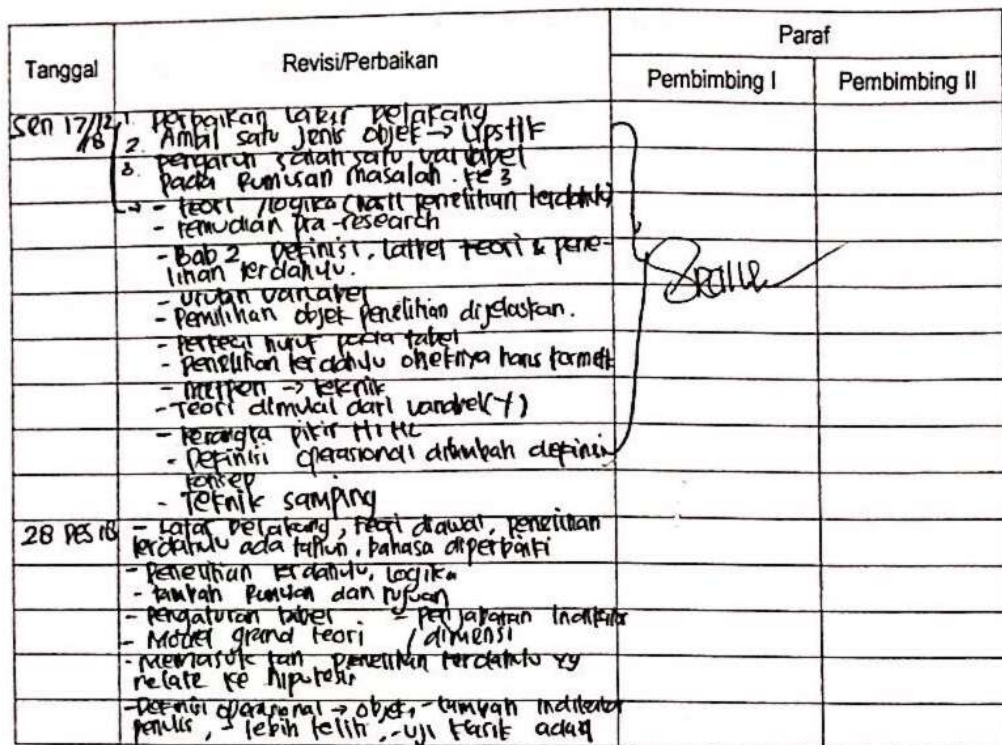 Tanggal
Revisi/Perbaikan
Paraf
Pembimbing I
Pembimbing II
Sen 17/12/18
1. Perbaikan Latar Belakang
2. Ambil satu jenis objek → Lipstik
3. pengaruh salah satu variabel
pada rumusan masalah. ke 3
→ - teori /logika (hasil penelitian terdahulu)
- kemudian pra-research
- Bab 2 Definisi, tabel teori & pene-
litian terdahulu.
- urutan variabel
- Pemilihan objek penelitian dijelaskan.
- perkecil huruf pada tabel
- penelitian terdahulu objeknya harus kosmetik
- → teknik
- Teori dimulai dari variabel (Y)
- kerangka pikir
- Definisi operasional ditambah definisi
konsep
- Teknik samping
28 Des 18
- Latar belakang, teori diawal, penelitian
terdahulu ada tahun, bahasa diperbaiki
- Penelitian terdahulu, Logika
- tambah Rumusan dan tujuan
- Pengaturan tabel - Penjabaran Indikator
- Model grand teori / dimensi
- Memasukkan penelitian terdahulu yg
relate ke hipotesis
- Definisi operasional → objek, - tambah indikator
penulis, - lebih teliti, - uji klasik